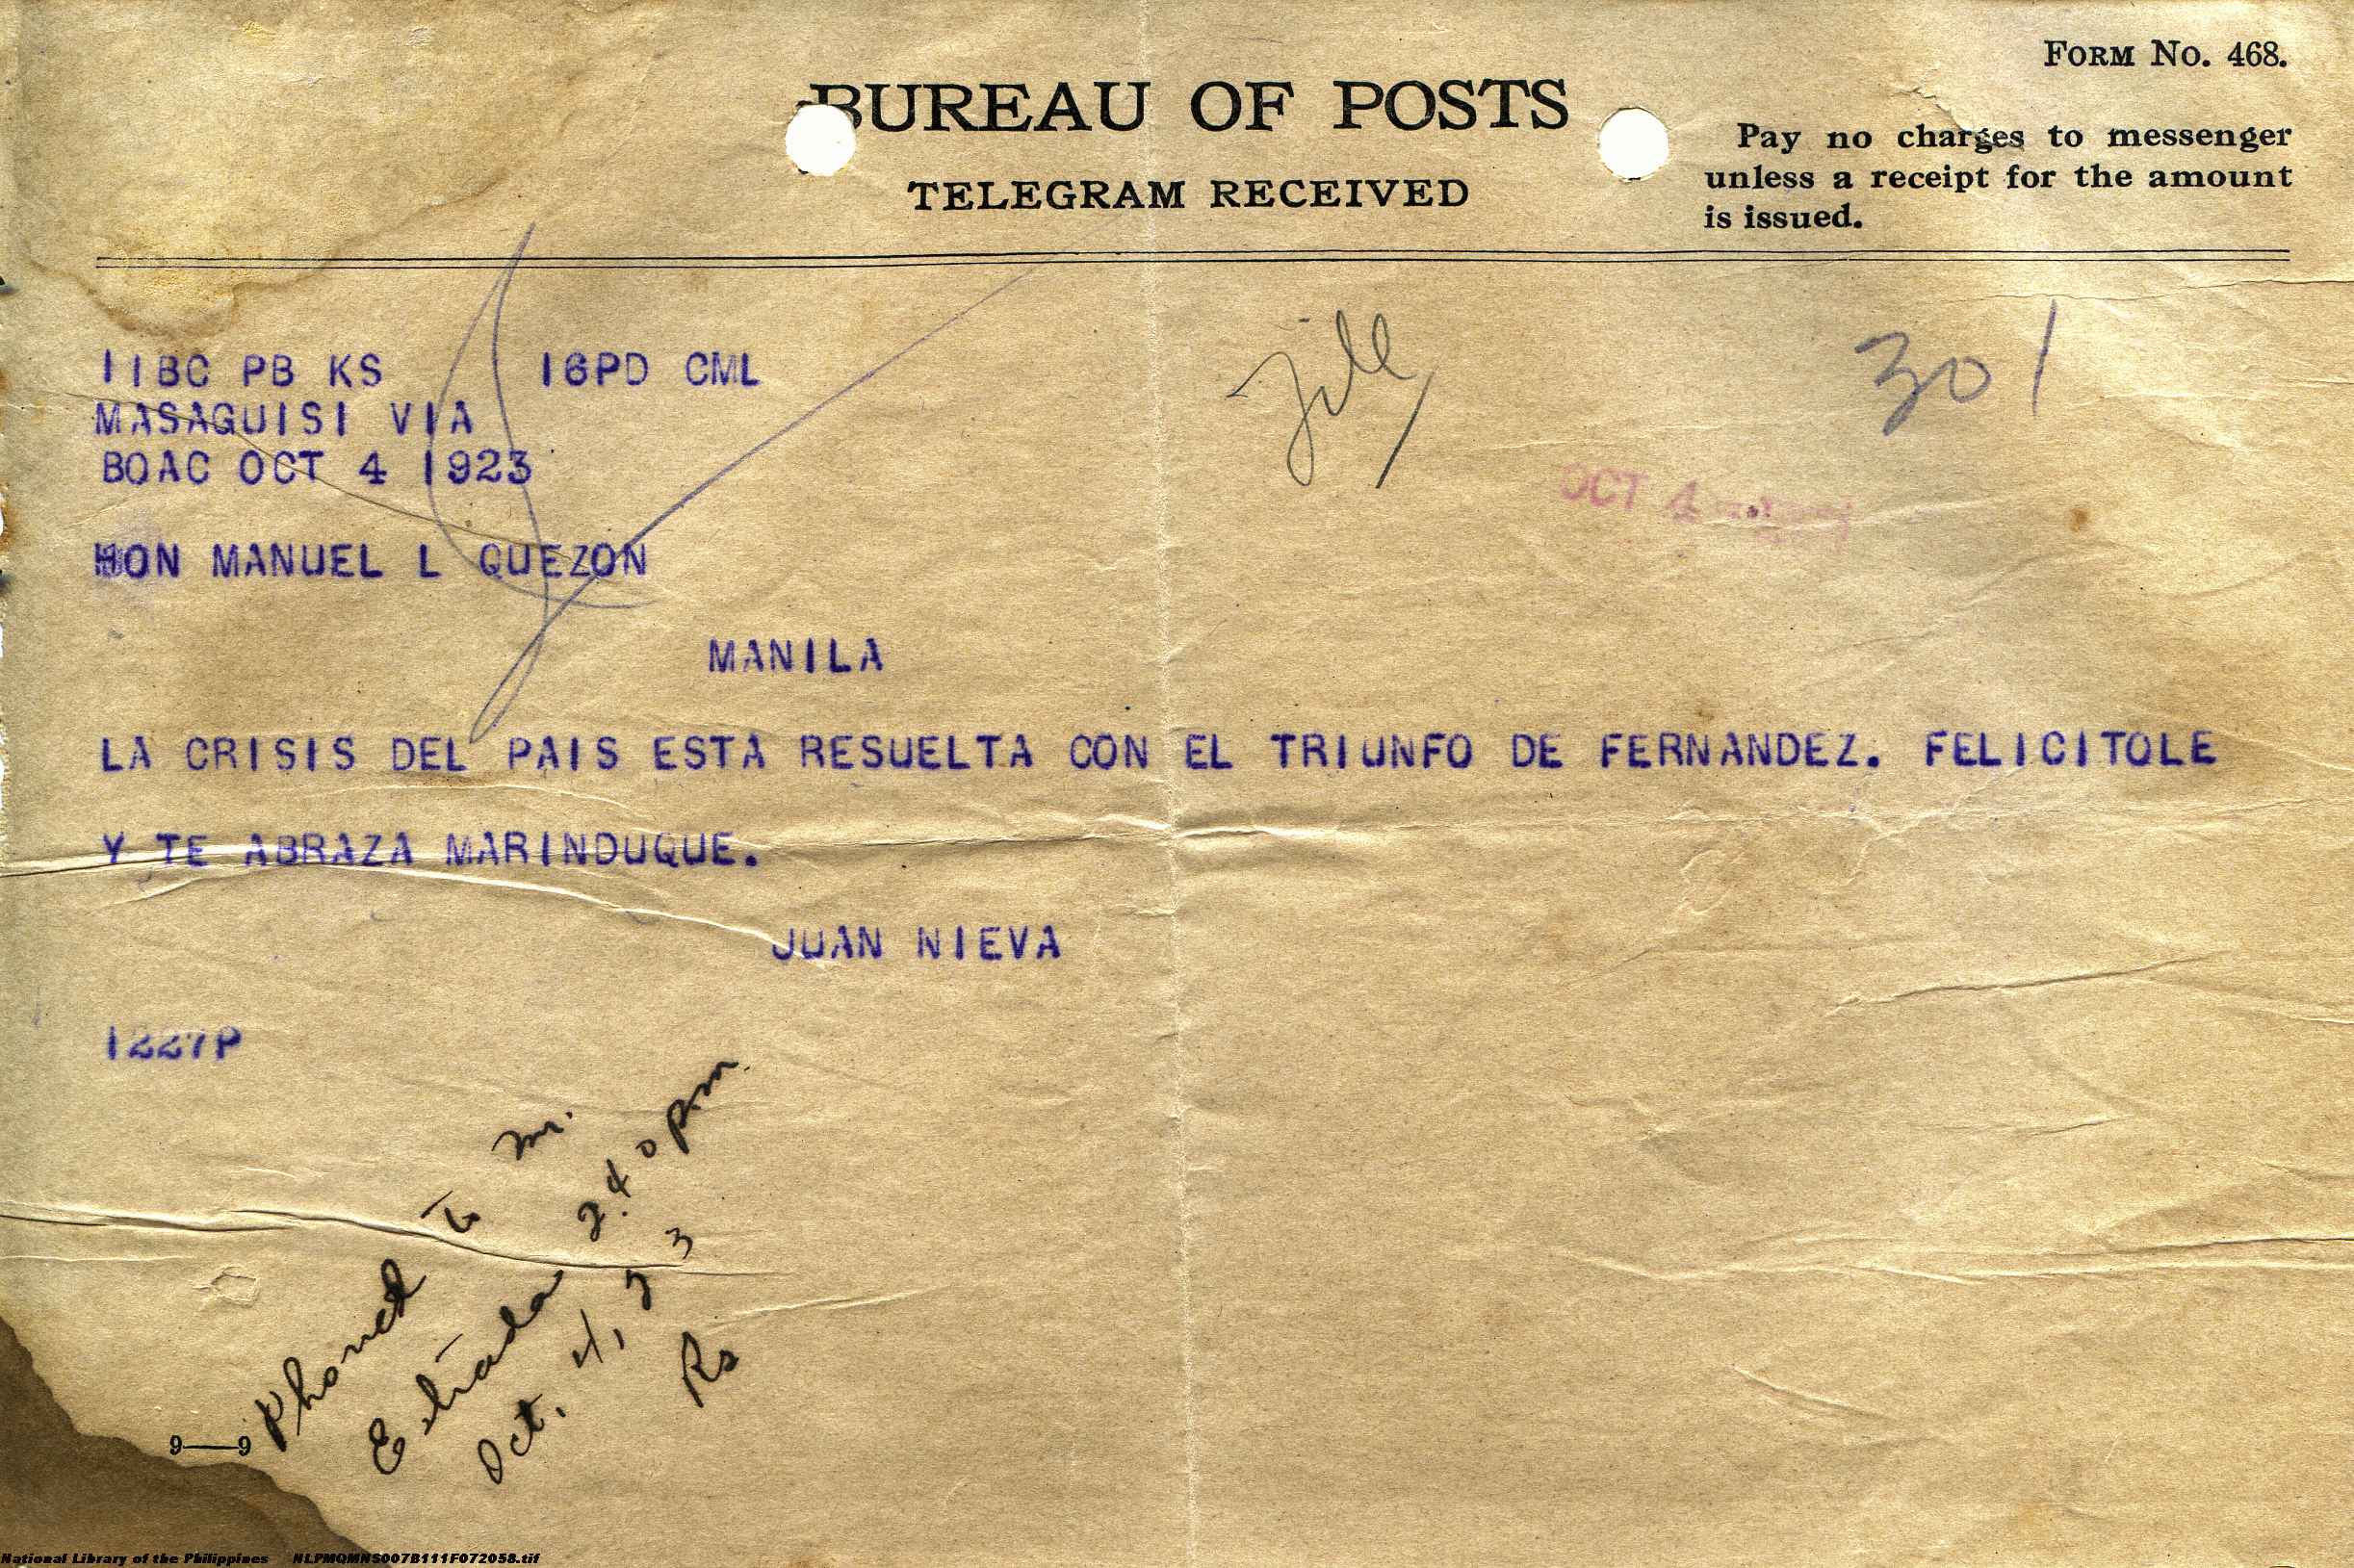 FORM NO. 468.
BUREAU OF POSTS
TELEGRAM RECEIVED
Pay no charges to messenger
unless a receipt for the amount
is issued.
11BC PB KS 16PD CML
MASAGUISI VIA
BOAC OCT 4 1923
HON MANUEL L QUEZON
MANILA
file
301
OCT 4
LA CRISIS DEL PAIS ESTA RESUELTA CON EL TRIUNFO DE FERNANDEZ. FELICITOLE
Y TE ABRAZA MARINDUQUE.
JUAN NIEVA
1227P
Phoned to Mr.
Estrada 2.40 pm.
Oct. 4, 23
Rs
9—9
National Library of the Philippines NLPMQMNS007B111F072058.tif